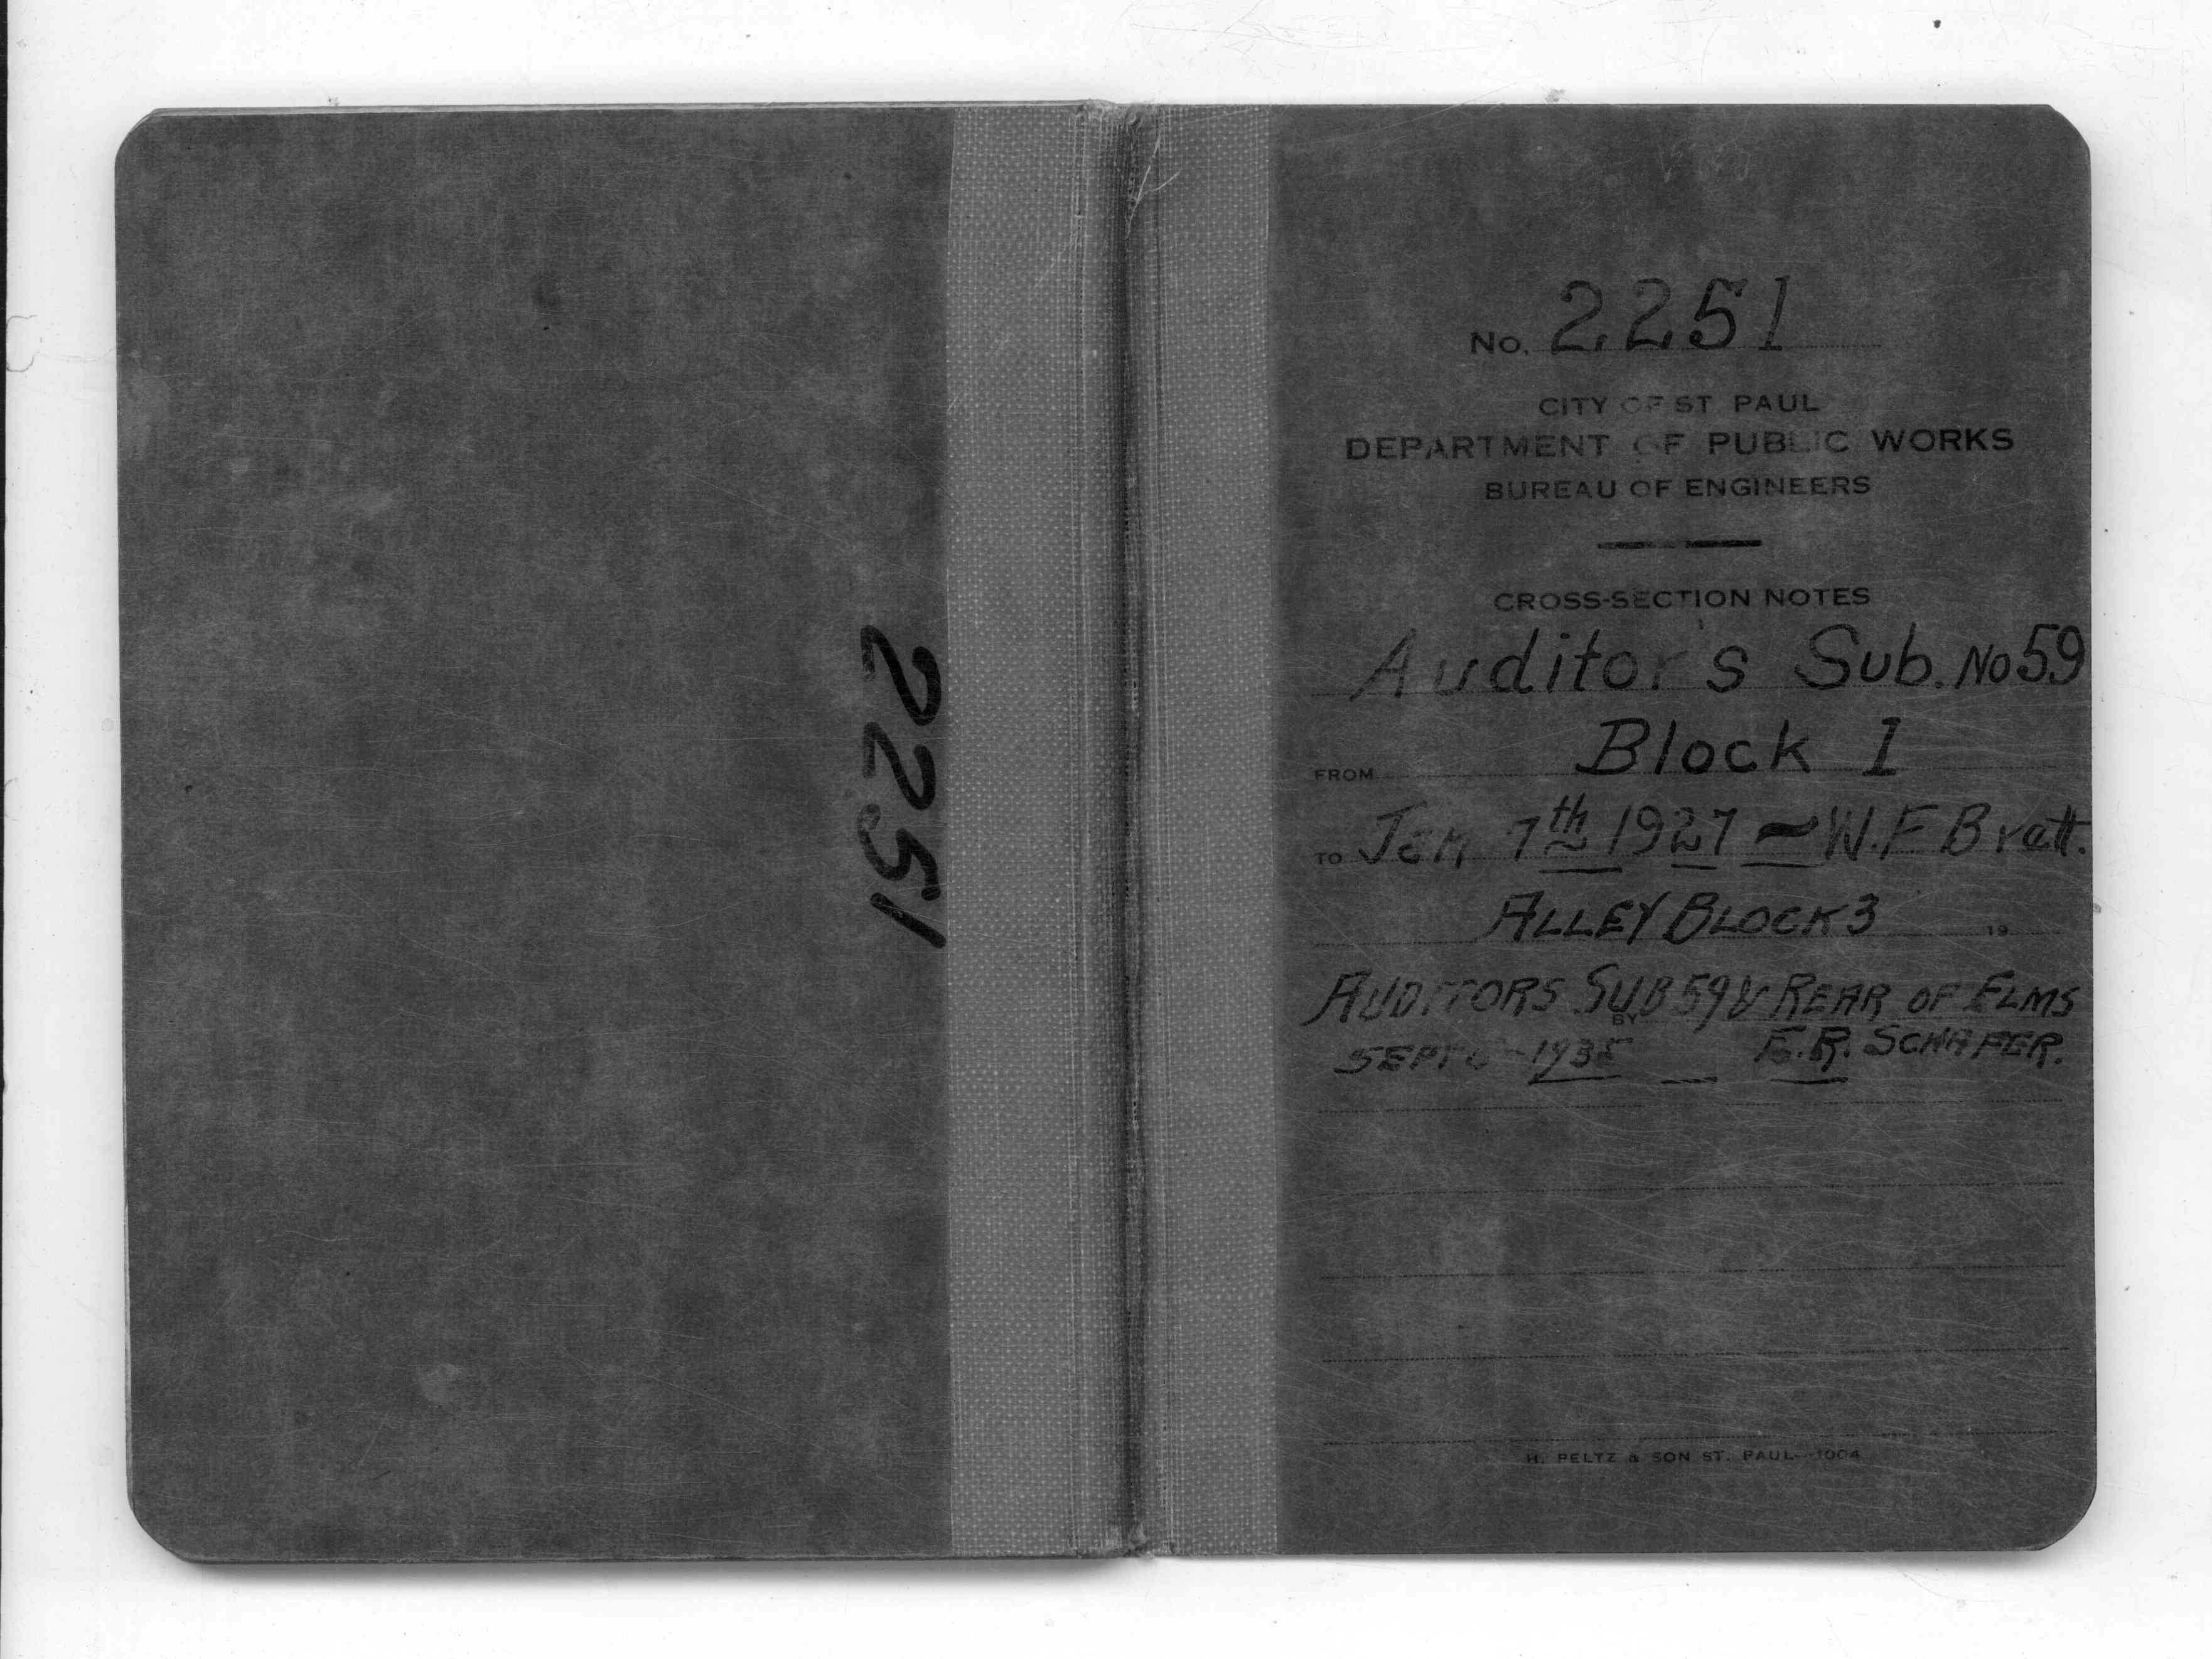 2251
No. 2251
CITY OF ST PAUL
DEPARTMENT OF PUBLIC WORKS
BUREAU OF ENGINEERS
CROSS-SECTION NOTES
Auditor's Sub. No 59
FROM Block 1
TO Jan 7th 1927 ~ W.F Bratt.
ALLEY BLOCK 3 19
AUDITORS SUB 59 & REAR OF ELMS
BY
SEPT 1935 E.R. SCHAFER.
H. PELTZ & SON ST. PAUL 1004